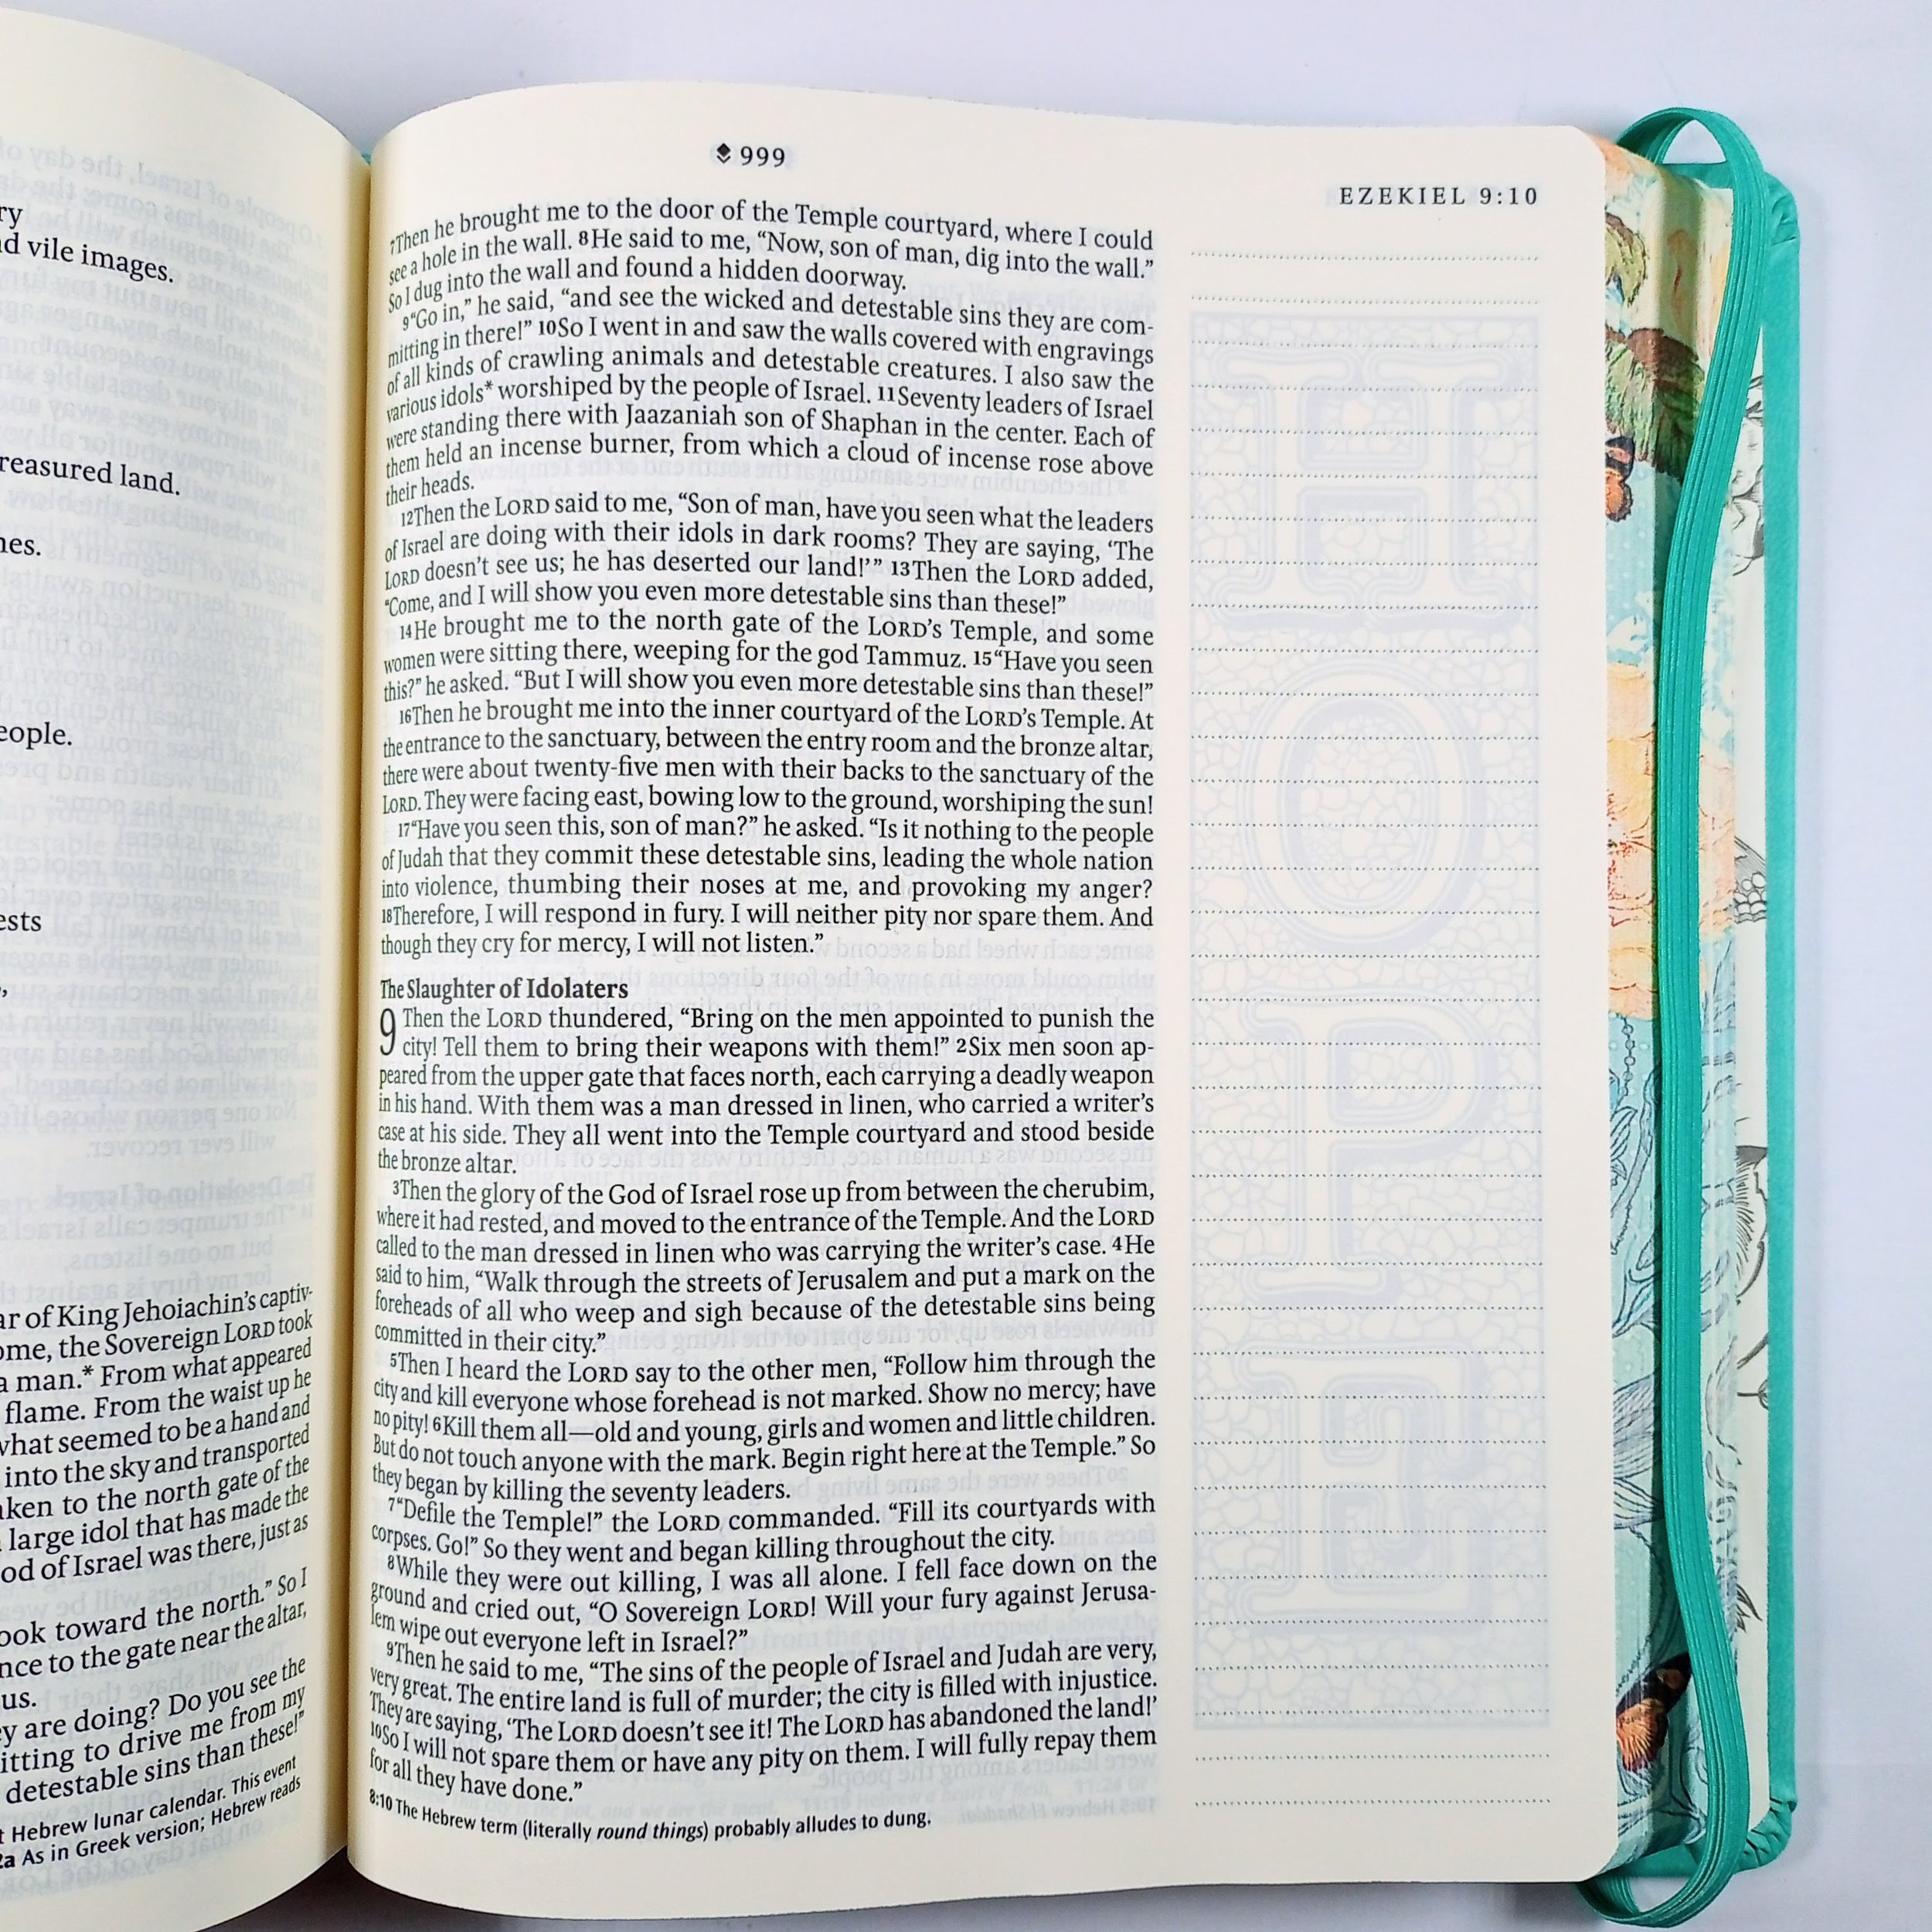 ry
nd vile images.
reasured land.
nes.
eople.
ests
ar of King Jehoiachin's captiv-
ome, the Sovereign LORD took
a man.* From what appeared
flame. From the waist up he
what seemed to be a hand and
into the sky and transported
aken to the north gate of the
large idol that has made the
od of Israel was there, just as
ook toward the north.” So I
nce to the gate near the altar,
us.
y are doing? Do you see the
itting to drive me from my
detestable sins than these!”
t Hebrew lunar calendar. This event
2a As in Greek version; Hebrew reads
999
EZEKIEL 9:10
7Then he brought me to the door of the Temple courtyard, where I could
see a hole in the wall. 8He said to me, “Now, son of man, dig into the wall.”
So I dug into the wall and found a hidden doorway.
9“Go in,” he said, “and see the wicked and detestable sins they are com-
mitting in there!” 10So I went in and saw the walls covered with engravings
of all kinds of crawling animals and detestable creatures. I also saw the
various idols* worshiped by the people of Israel. 11Seventy leaders of Israel
were standing there with Jaazaniah son of Shaphan in the center. Each of
them held an incense burner, from which a cloud of incense rose above
their heads.
12Then the LORD said to me, “Son of man, have you seen what the leaders
of Israel are doing with their idols in dark rooms? They are saying, ‘The
LORD doesn't see us; he has deserted our land!’” 13Then the LORD added,
“Come, and I will show you even more detestable sins than these!”
14He brought me to the north gate of the LORD's Temple, and some
women were sitting there, weeping for the god Tammuz. 15“Have you seen
this?” he asked. “But I will show you even more detestable sins than these!”
16Then he brought me into the inner courtyard of the LORD's Temple. At
the entrance to the sanctuary, between the entry room and the bronze altar,
there were about twenty-five men with their backs to the sanctuary of the
LORD. They were facing east, bowing low to the ground, worshiping the sun!
17“Have you seen this, son of man?” he asked. “Is it nothing to the people
of Judah that they commit these detestable sins, leading the whole nation
into violence, thumbing their noses at me, and provoking my anger?
18Therefore, I will respond in fury. I will neither pity nor spare them. And
though they cry for mercy, I will not listen.”
The Slaughter of Idolaters
9 Then the LORD thundered, “Bring on the men appointed to punish the
city! Tell them to bring their weapons with them!” 2Six men soon ap-
peared from the upper gate that faces north, each carrying a deadly weapon
in his hand. With them was a man dressed in linen, who carried a writer's
case at his side. They all went into the Temple courtyard and stood beside
the bronze altar.
3Then the glory of the God of Israel rose up from between the cherubim,
where it had rested, and moved to the entrance of the Temple. And the LORD
called to the man dressed in linen who was carrying the writer's case. 4He
said to him, “Walk through the streets of Jerusalem and put a mark on the
foreheads of all who weep and sigh because of the detestable sins being
committed in their city.”
5Then I heard the LORD say to the other men, “Follow him through the
city and kill everyone whose forehead is not marked. Show no mercy; have
no pity! 6Kill them all—old and young, girls and women and little children.
But do not touch anyone with the mark. Begin right here at the Temple.” So
they began by killing the seventy leaders.
7“Defile the Temple!” the LORD commanded. “Fill its courtyards with
corpses. Go!” So they went and began killing throughout the city.
8While they were out killing, I was all alone. I fell face down on the
ground and cried out, “O Sovereign LORD! Will your fury against Jerusa-
lem wipe out everyone left in Israel?”
9Then he said to me, “The sins of the people of Israel and Judah are very,
very great. The entire land is full of murder; the city is filled with injustice.
They are saying, ‘The LORD doesn't see it! The LORD has abandoned the land!’
10So I will not spare them or have any pity on them. I will fully repay them
for all they have done.”
8:10 The Hebrew term (literally round things) probably alludes to dung.